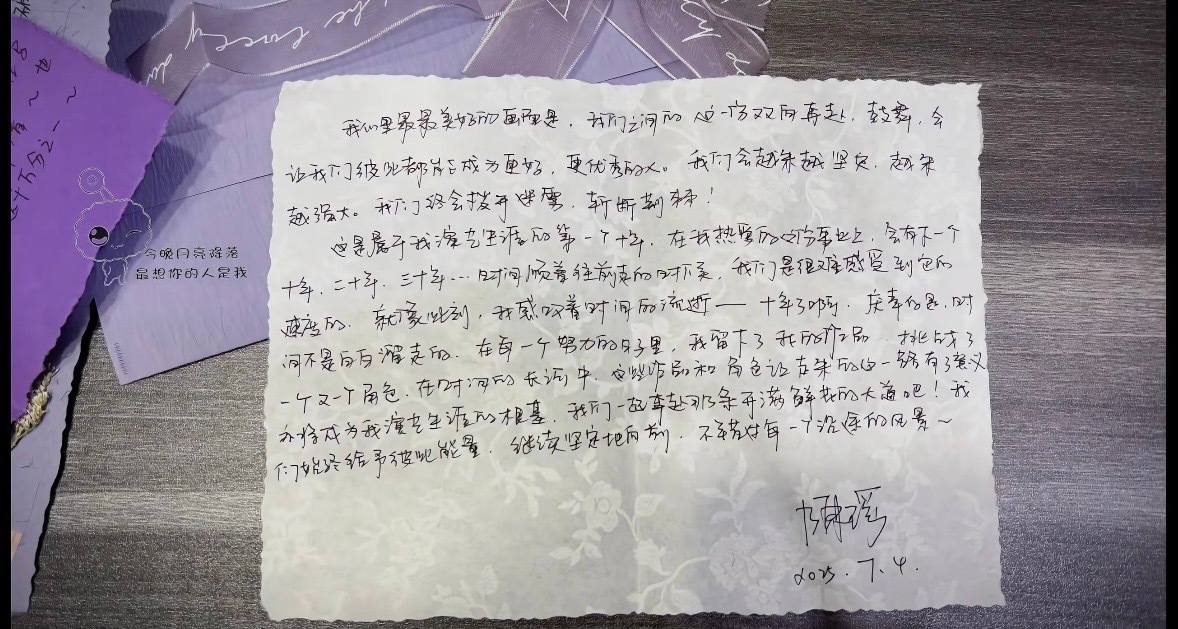 the lovely
今晚月亮降落
最想你的人是我
我们里最最美好的画面是，我们之间的这一份双向奔赴、鼓舞，会
让我们彼此都能成为更好、更优秀的人。我们会越来越坚定、越来
越强大。我们终会拨开迷雾，斩断荆棘！
这是属于我演艺生涯的第一个十年，在我热爱的这份事业上，会有下一个
十年、二十年、三十年…时间顺着往前走的时候，我们是很难感受到它的
速度的，就像此刻，我感叹着时间的流逝——十年了啊，庆幸的是，时
间不是白白溜走的，在每一个努力的日子里，我留下了我的作品，挑战了
一个又一个角色，在时间的长河中，这些作品和角色让走来的这一路有了意义
亦将成为我演艺生涯的根基，我们一起奔赴那条开满鲜花的大道吧！我
们始终给予彼此能量，继续坚定地向前，不辜负每一个沿途的风景～
陈瑶
2025.7.4.